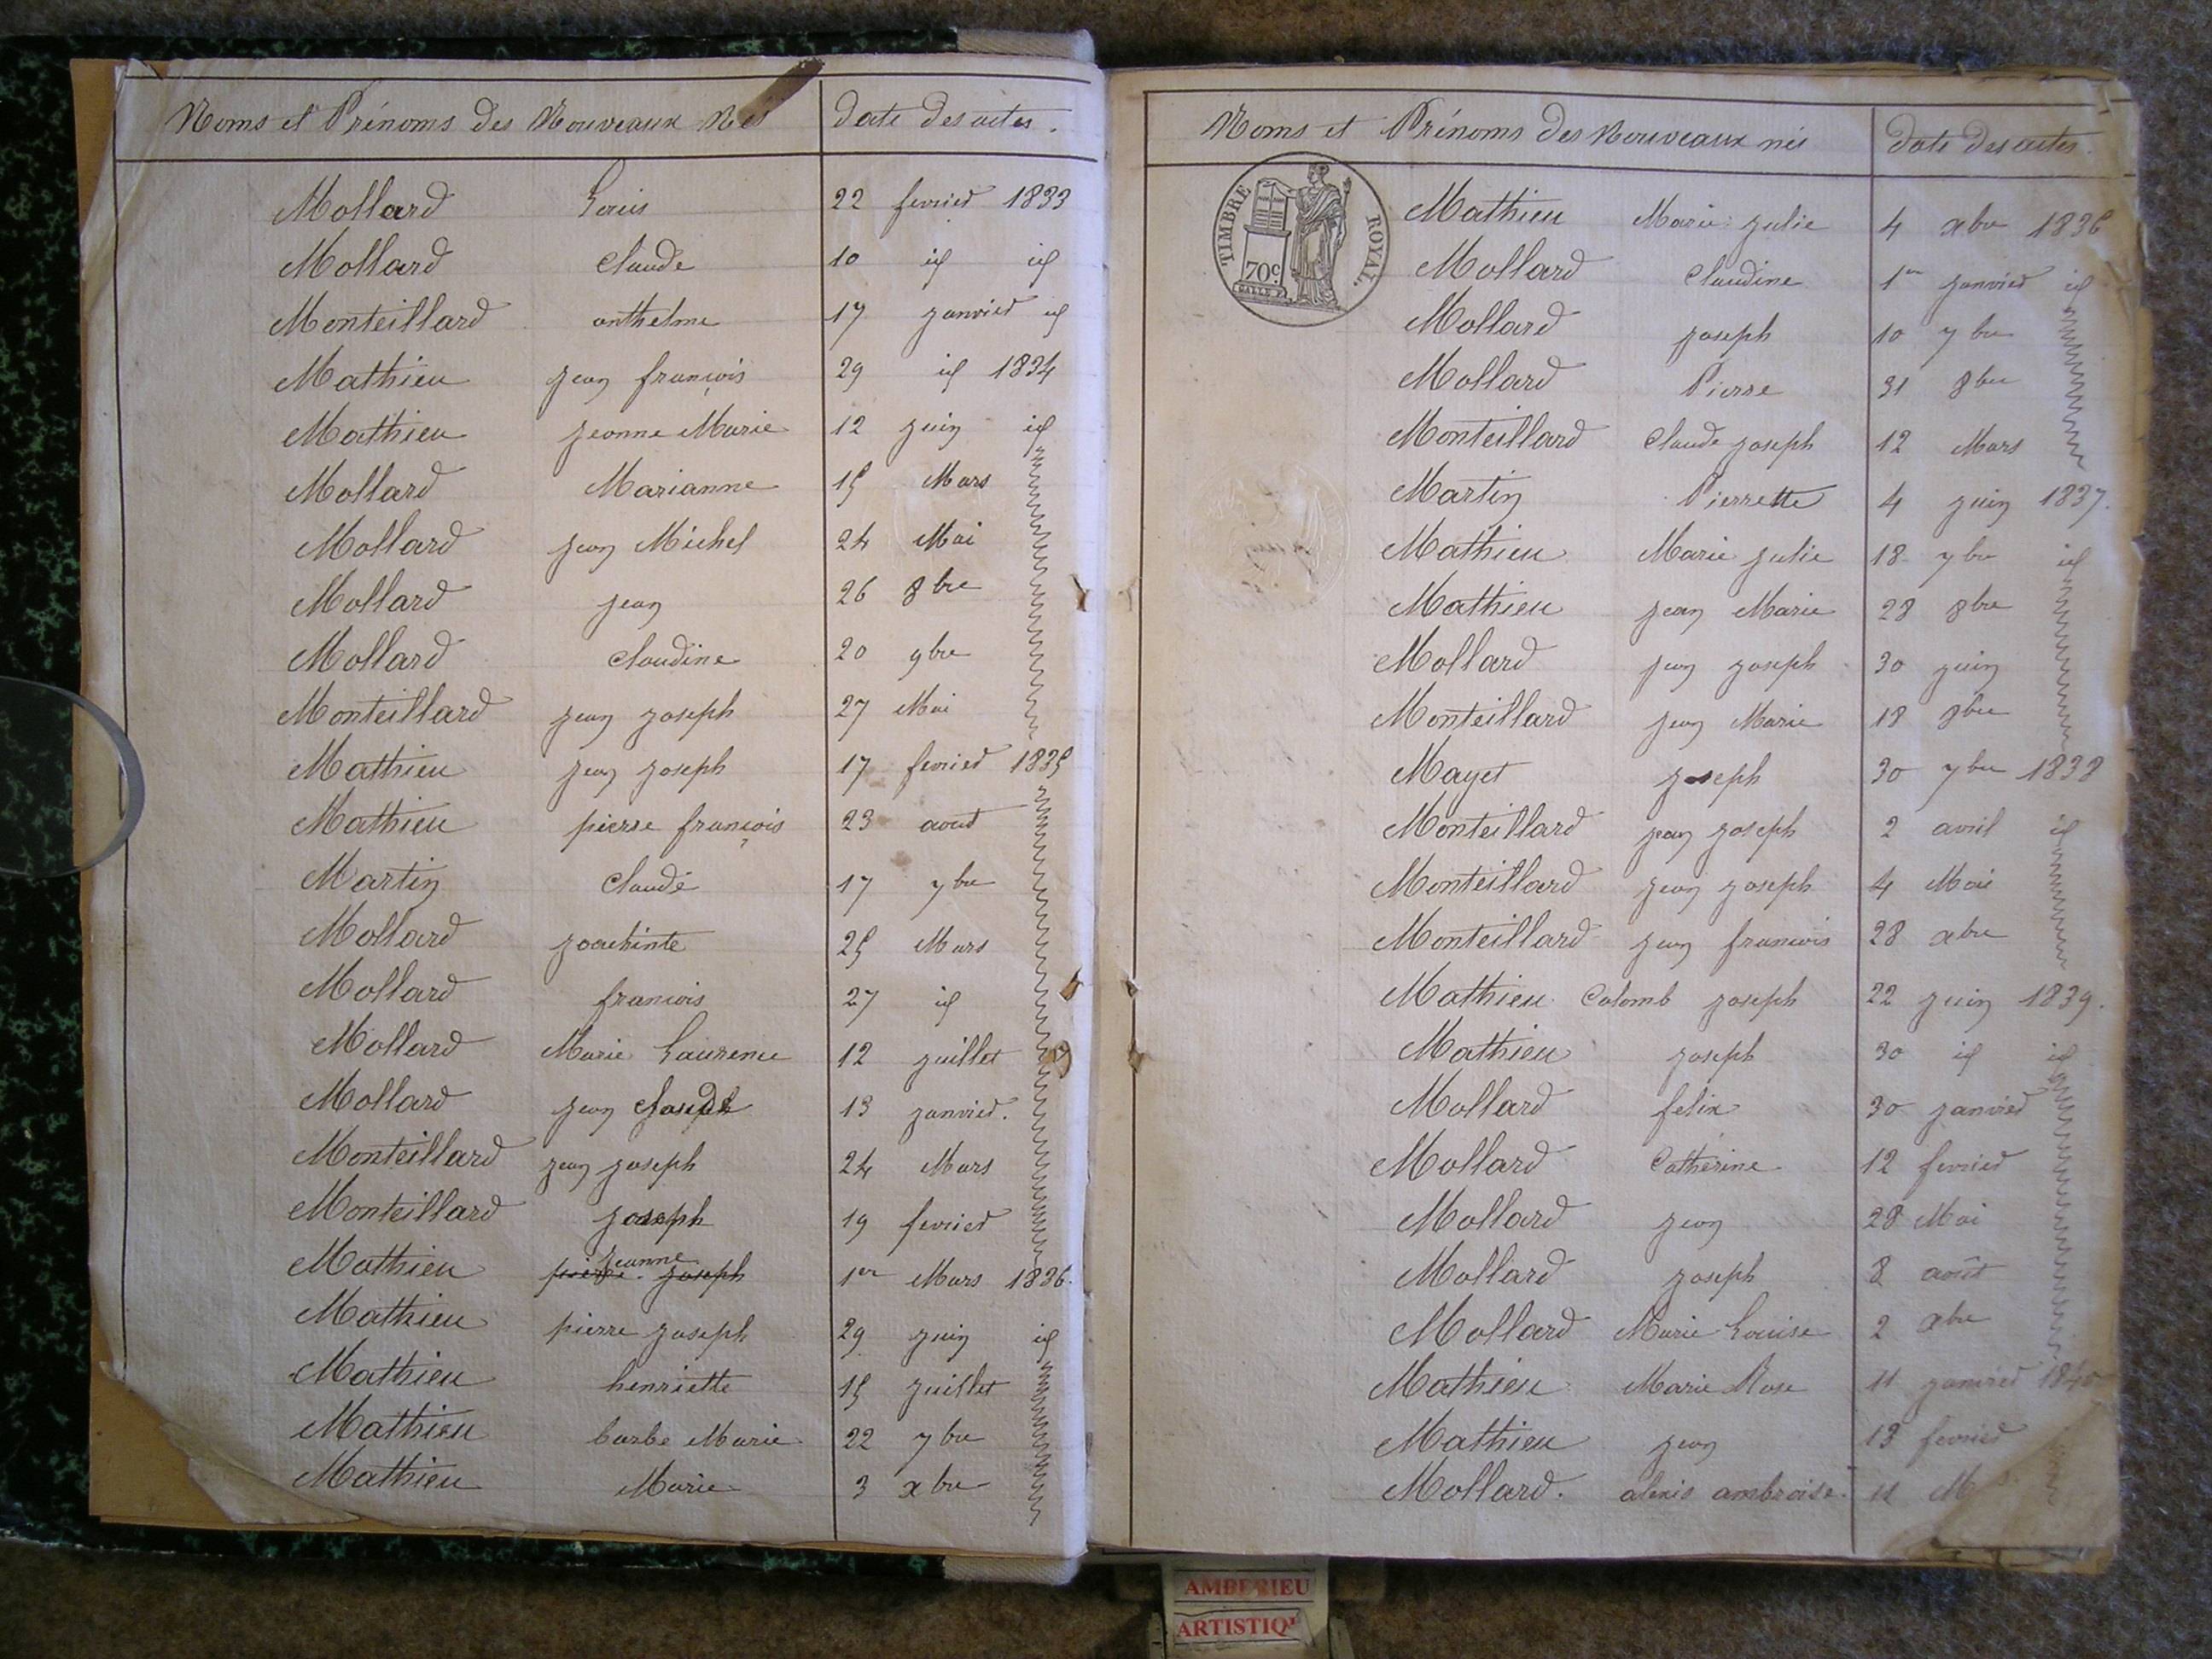 Noms et Prénoms des Nouveaux Nés date des actes.
Mollard Louis 22 fevrier 1833
Mollard Claude 10 id id
Monteillard anthelme 17 janvier id
Mathieu jean françois 29 id 1834
Mathieu jeanne Marie 12 juin id
Mollard Marianne 15 Mars
Mollard jean Michel 24 Mai
Mollard jean 26 8bre
Mollard Claudine 20 9bre
Monteillard jean joseph 27 Mai
Mathieu jean joseph 17 fevrier 1835
Mathieu pierre françois 23 aout
Martin Claude 17 7bre
Mollard joachinte 25 Mars
Mollard francois 27 id
Mollard Marie Laurence 12 juillet
Mollard jean 13 janvier.
Monteillard jean joseph 24 Mars
Monteillard joseph 19 fevrier
jeanne
Mathieu pierre joseph 1er Mars 1836.
Mathieu pierre joseph 29 juin id
Mathieu henriette 15 juillet
Mathieu barbe Marie 22 7bre
Mathieu Marie 3 xbre
Noms et Prénoms des Nouveaux nés date des actes.
TIMBRE ROYAL.
70c
Mathieu Marie julie 4 xbre 1836
Mollard Claudine 1er janvier id
Mollard joseph 10 7bre
Mollard Pierre 31 8bre
Monteillard Claude joseph 12 Mars
Martin Pierrette 4 juin 1837.
Mathieu Marie julie 18 7bre id
Mathieu jean Marie 28 8bre
Mollard jean joseph 30 juin
Monteillard jean Marie 18 9bre
Mayet joseph 30 7bre 1838
Monteillard jean joseph 2 avril id
Monteillard jean joseph 4 Mai
Monteillard jean francois 28 xbre
Mathieu Colomb joseph 22 juin 1839.
Mathieu joseph 30 id id
Mollard felix 30 janvier
Mollard Catherine 12 fevrier
Mollard jean 28 Mai
Mollard joseph 8 août
Mollard Marie Louise 2 xbre
Mathieu Marie Rose 11 janvier 1840
Mathieu jean 13 fevrier
Mollard. alexis ambroise. 11
AMBERIEU
ARTISTIQ